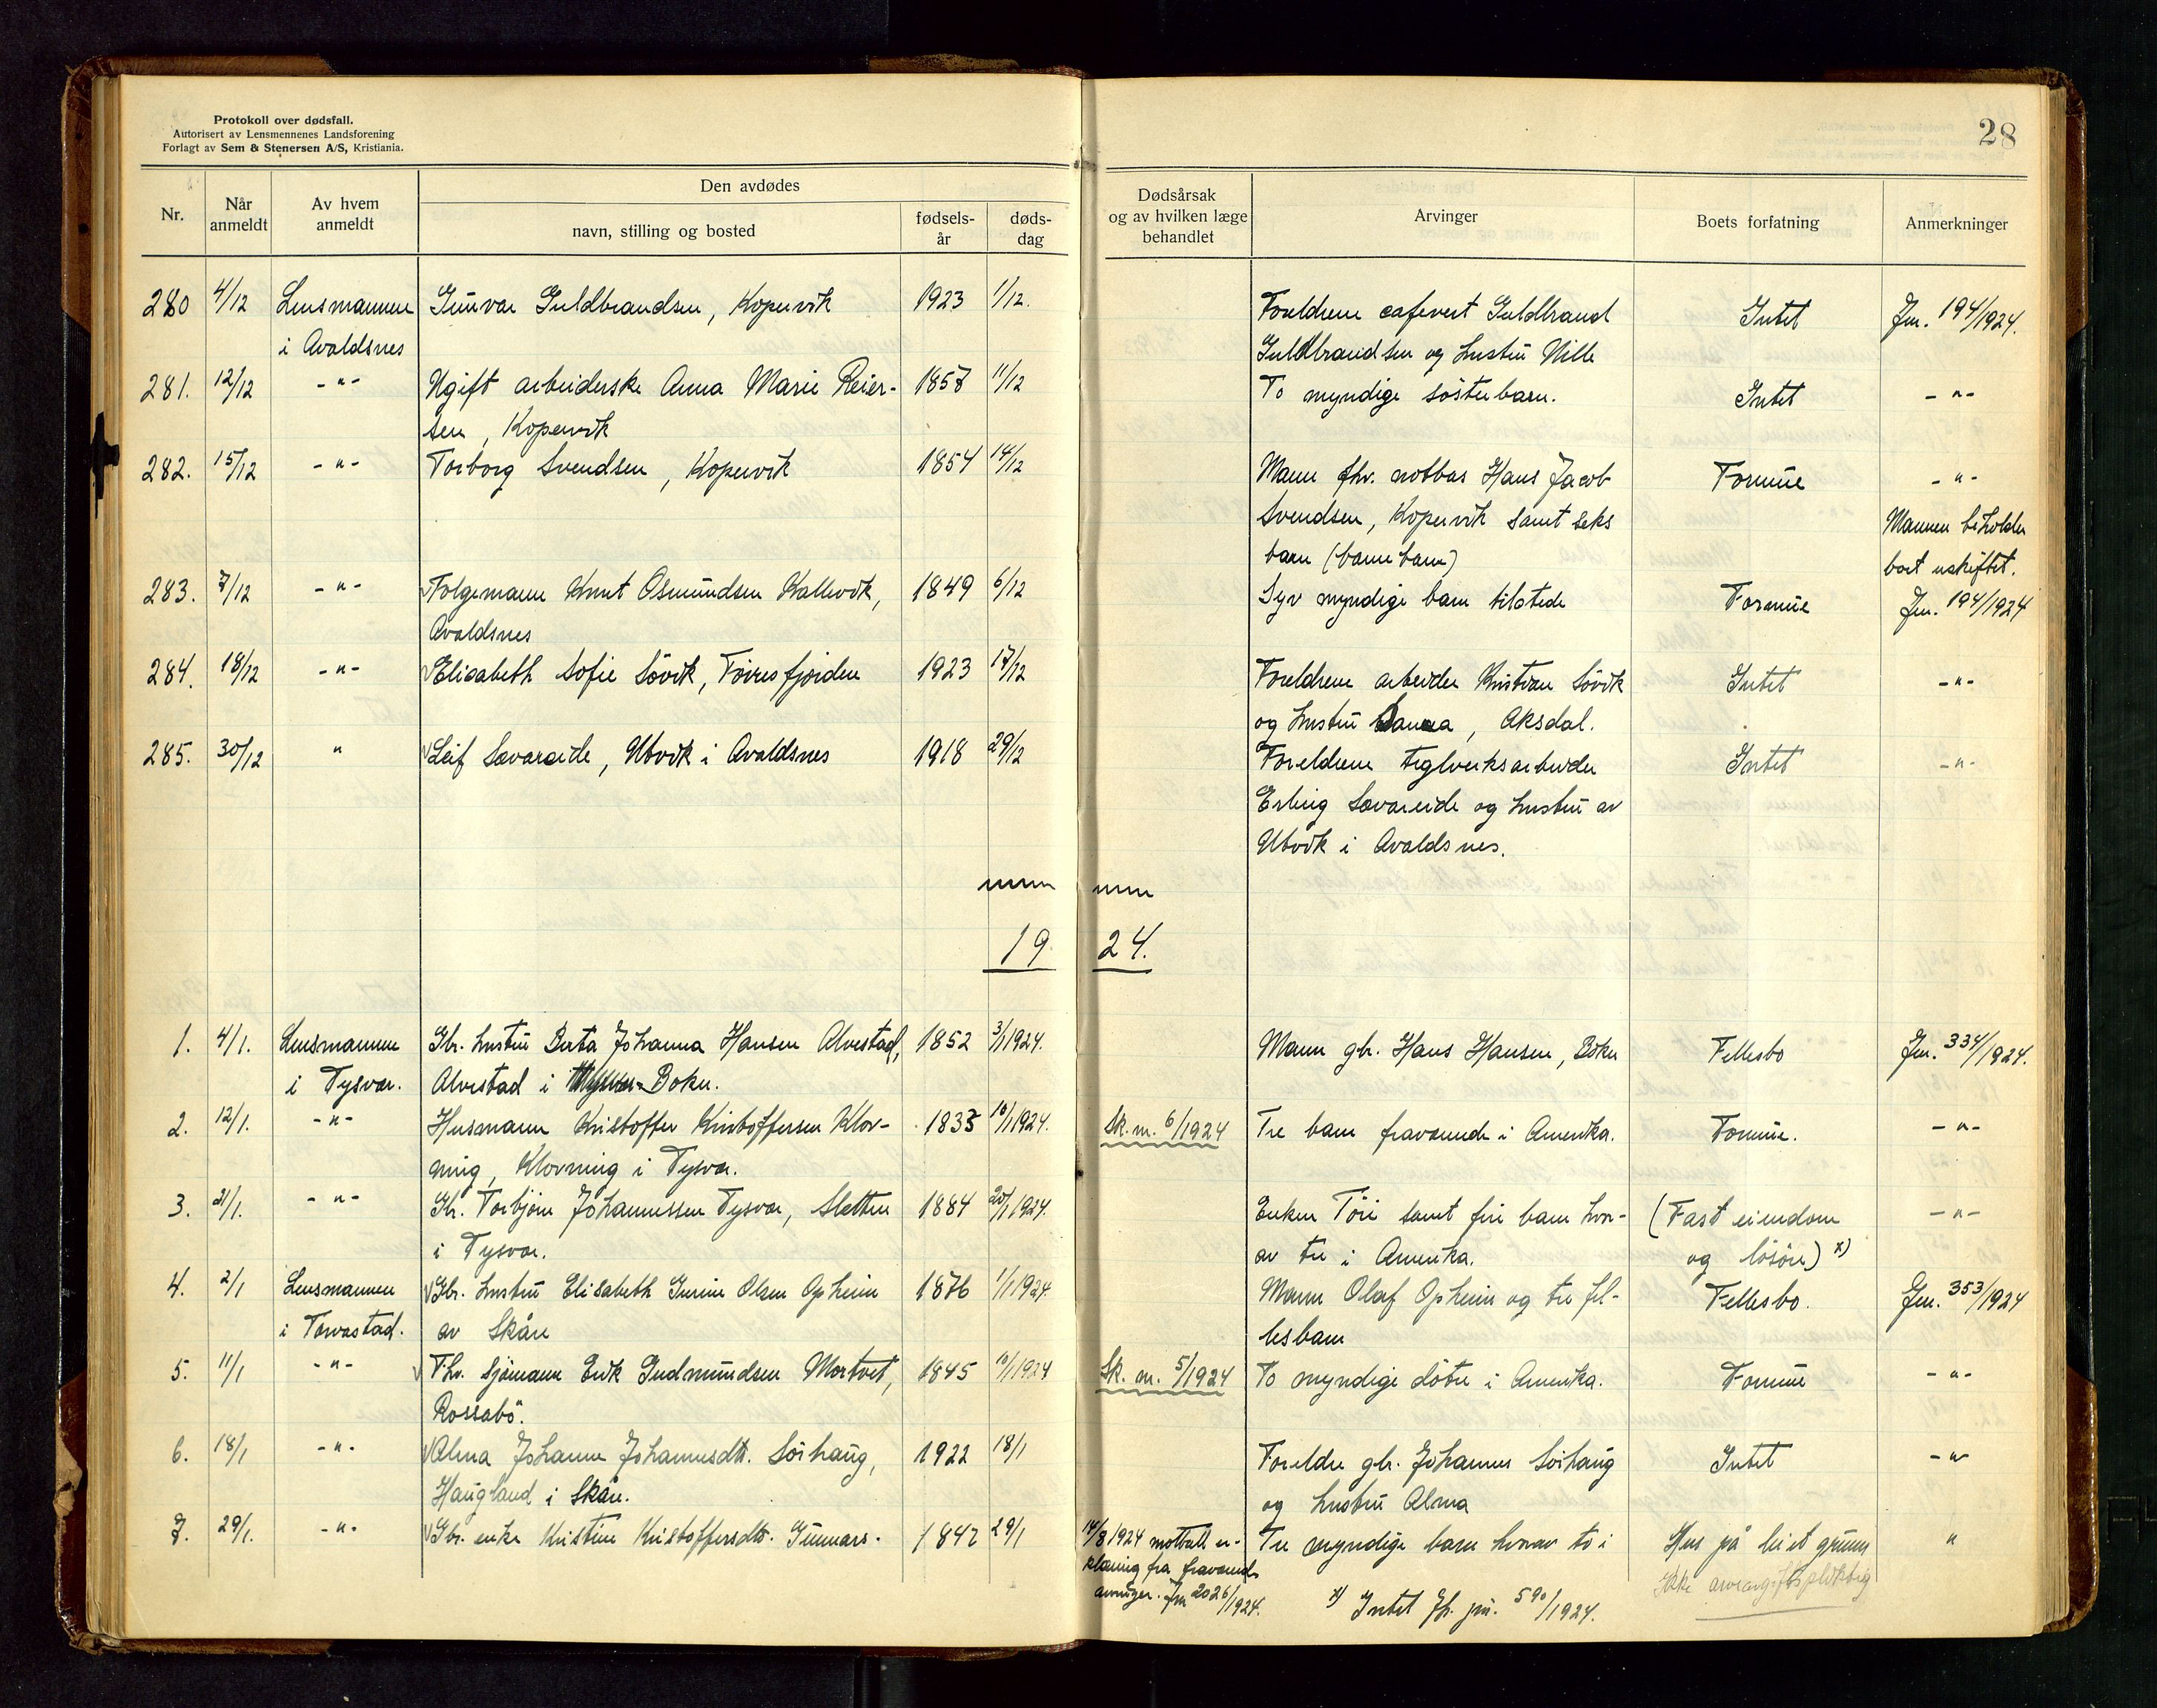 Protokoll over dødsfall.
Autorisert av Lensmennenes Landsforening
Forlagt av Sem & Stenersen A/S, Kristiania.
28
Nr.
Når anmeldt
Av hvem anmeldt
Den avdødes
navn, stilling og bosted
fødsels-år
døds-dag
Dødsårsak og av hvilken læge behandlet
Arvinger
Boets forfatning
Anmerkninger
280 4/12 Lensmannen Gunvar Guldbrandsen, Kopervik 1923 1/12. Foreldrene cafevert Guldbrand Intet Jnr. 194/1924.
i Avaldsnes Guldbrandsen og hustru Nille
281. 12/12 -"- Ugift arbeiderske Anna Marie Reier- 1858 11/12 To myndige søsterbarn. Intet -"-
sen, Kopervik
282. 15/12 -"- Torborg Svendsen, Kopervik 1854 14/12 Mann fhv. notbas Hans Jacob Formue -"-
Svendsen, Kopervik samt seks Mannen beholder
barn (barnebarn) boet uskiftet.
283. 7/12 -"- Folgemann Knut Osmundsen Kallevik, 1849 6/12 Syv myndige barn tilstede Formue Jnr. 194/1924
Avaldsnes
284. 18/12 -"- Elisabeth Sofie Søvik, Førresfjorden 1923 17/12 Foreldrene arbeider Kristian Søvik Intet -"-
og hustru , Aksdal.
285. 30/12 " Leif Savareide, Utvik i Avaldsnes 1918 29/12 Foreldrene teglverksarbeider Intet -"-
Erling Savareide og hustru av
Utvik i Avaldsnes.
19 24.
1. 4/1. Lensmannen Gbr. hustru Berta Johanna Hansen Alvestad, 1852 3/1 1924. Mann gbr. Hans Hansen, Bokn Fellesbo Jnr. 334/1924.
i Tysvær. Alvestad i Bokn.
2. 12/1. -"- Husmann Kristoffer Kristoffersen Klov- 1835 10/1 1924. Sk.m. 6/1924 Tre barn fraværende i Amerika. Formue. -"-
ning, Klovning i Tysvær.
3. 21/1. -"- Gbr. Torbjørn Johannessen Tysvær, Sletten 1884 20/1 1924. Enken Tøri samt fire barn hvor- (Fast eiendom -"-
i Tysvær. av tre i Amerika. og løsøre) x)
4. 2/1 Lensmannen Gbr. hustru Elisabeth Gurine Olsen Opheim 1876 1/1 1924 Mann Olaf Opheim og tre fel- Fellesbo. Jnr. 353/1924
i Torvastad. av Skåre lesbarn
5. 11/1 -"- Fhv. sjømann Erik Gudmundsen Mortveit, 1845 10/1 1924 Sk. m. 5/1924 To myndige døtre i Amerika. Formue -"-
Rossabø.
6. 18/1 -"- Alma Johanne Johannesdtr. Sørhaug, 1922 18/1 Foreldre gbr. Johannes Sørhaug Intet -"-
Haugland i Skåre. og hustru Alma
7. 29/1. -"- Gbr. enke Kristine Kristoffersdtr. Gunnars- 1847 29/1 Tre myndige barn hvorav to i Hus på leiet grunn "
14/8 1924 mottatt er-
klæring fra fraværende
arvinger. Jnr 2026/1924.
x) Intet jfr. jnr. 590/1924.
Ikke arveavgiftspliktig